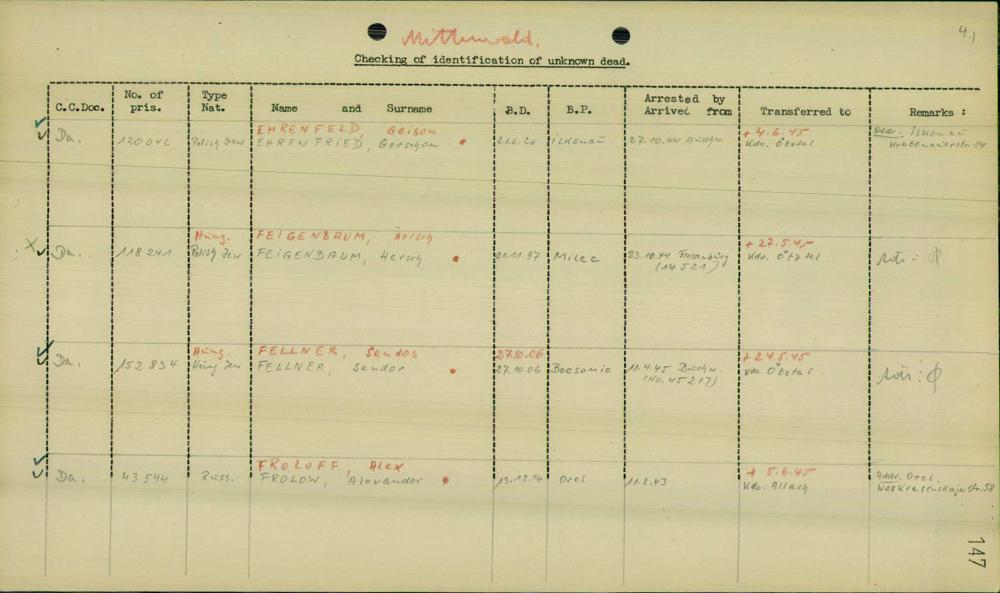 Mittenwald.
4.)
Checking of identification of unknown dead.
C.C.Doc. No. of pris. Type Nat. Name and Surname B.D. B.P. Arrested by Arrived from Transferred to Remarks :
EHRENFELD, + 4.6.45 Addr. Ilkenau
Da. Polish Jew EHRENFRIED, Ilkenau 27.10.44 Kdo. Ötztal
Hung. FEIGENBAUM, Hersch + 27.5.45
Da. 118241 Polish Jew FEIGENBAUM, Hersch 21.11.97 Mielec 23.10.44 Flossenbürg Kdo. Ötztal Adr: Ø
(14521)
Hung. FELLNER, Sandor 27.10.06 + 24.5.45
Da. 152834 Hung Jew FELLNER, Sandor 27.10.06 11.4.45 Buchw. Kdo. Ötztal Adr: Ø
(No. 45217)
FROLOFF, Alex + 5.6.45 Addr. Orel,
Da. 43544 Russ. FROLOW, Alexander 13.12.14 Orel 11.2.43 Kdo. Allach Woskresenskaja str. 58
147